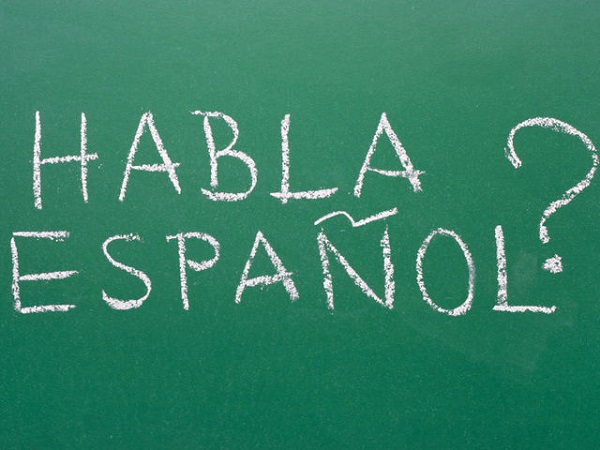 HABLA
ESPAÑOL?